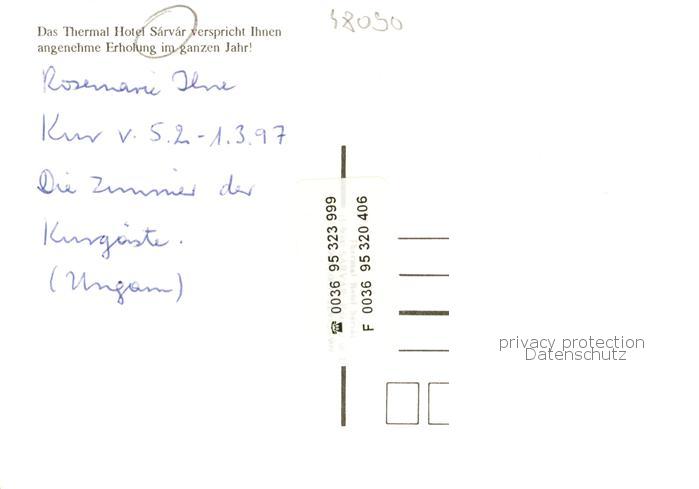 48090
Das Thermal Hotel Sárvár verspricht Ihnen
angenehme Erholung im ganzen Jahr!
Rosemarie
Kur v. 5.2.-1.3.97
Die Zimmer der
Kurgäste.
(Ungarn)
☎ 0036 95 323 999
F 0036 95 320 406
privacy protection
Datenschutz